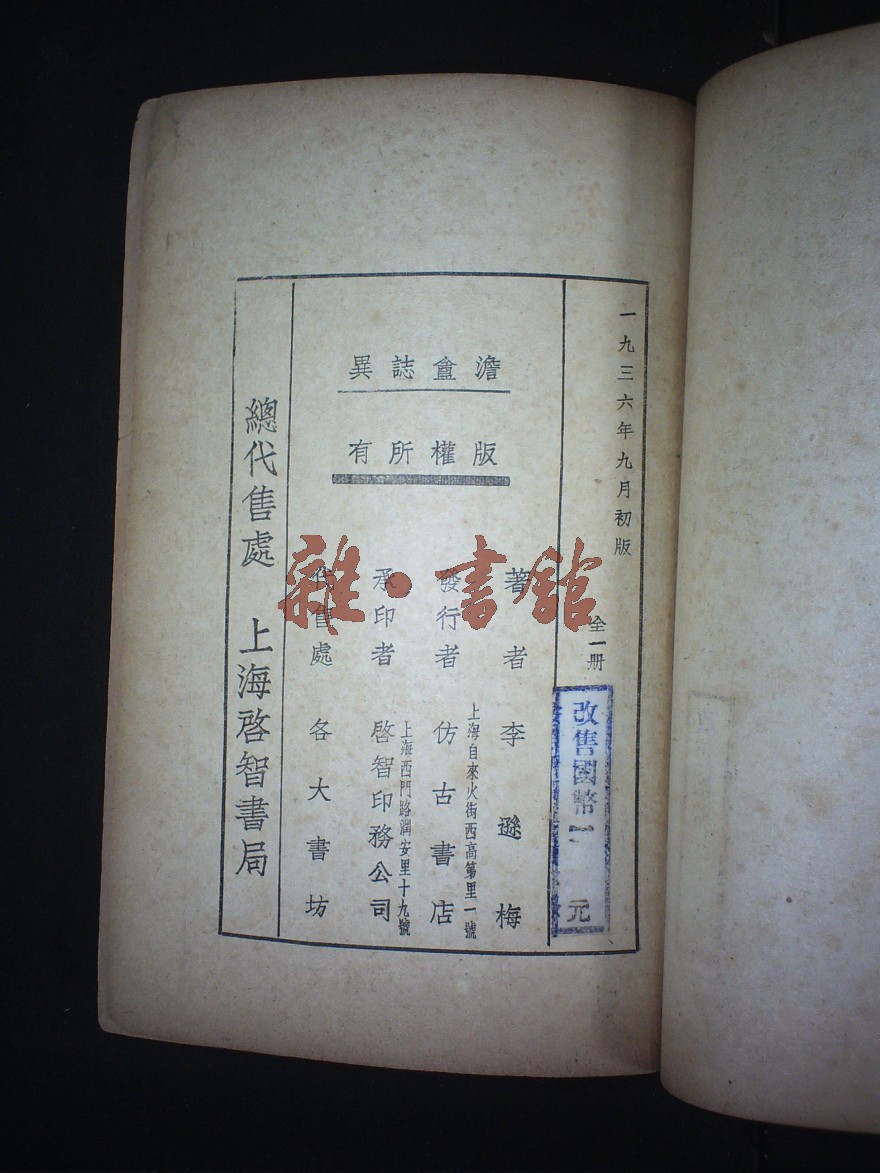 一九三六年九月初版
全一册
改售國幣一元
澹盦誌異
版權所有
著者 李遜梅
上海自來火街西高第里一號
發行者 仿古書店
上海西門路潤安里十九號
承印者 啓智印務公司
代售處 各大書坊
總代售處 上海啓智書局
雜·書館